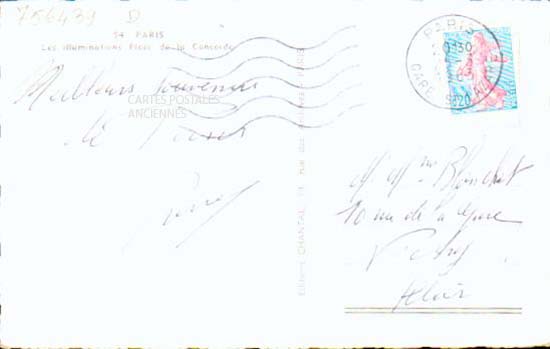 756439 D
54 PARIS
Les illuminations Place de la Concorde
Meilleurs souvenirs
de Paris
CARTES POSTALES
ANCIENNES
Editions CHANTAL, 74, rue des PARIS
PARIS
GARE
M. Mme Blanchet
10 rue de la Gare
Vichy
Allier